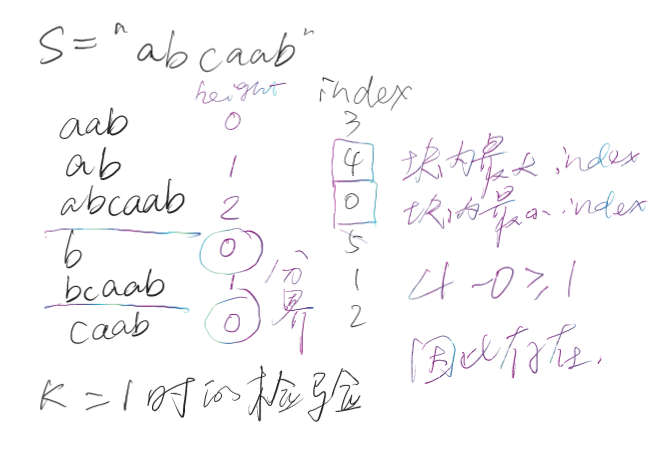 S="abcaab"
height index
aab 0 3
ab 1 4 块内最大index
abcaab 2 0 块内最小index
b 0 分界 5
bcaab 1 1 4-0≥1
caab 0 2 因此存在.
K=1时的检验